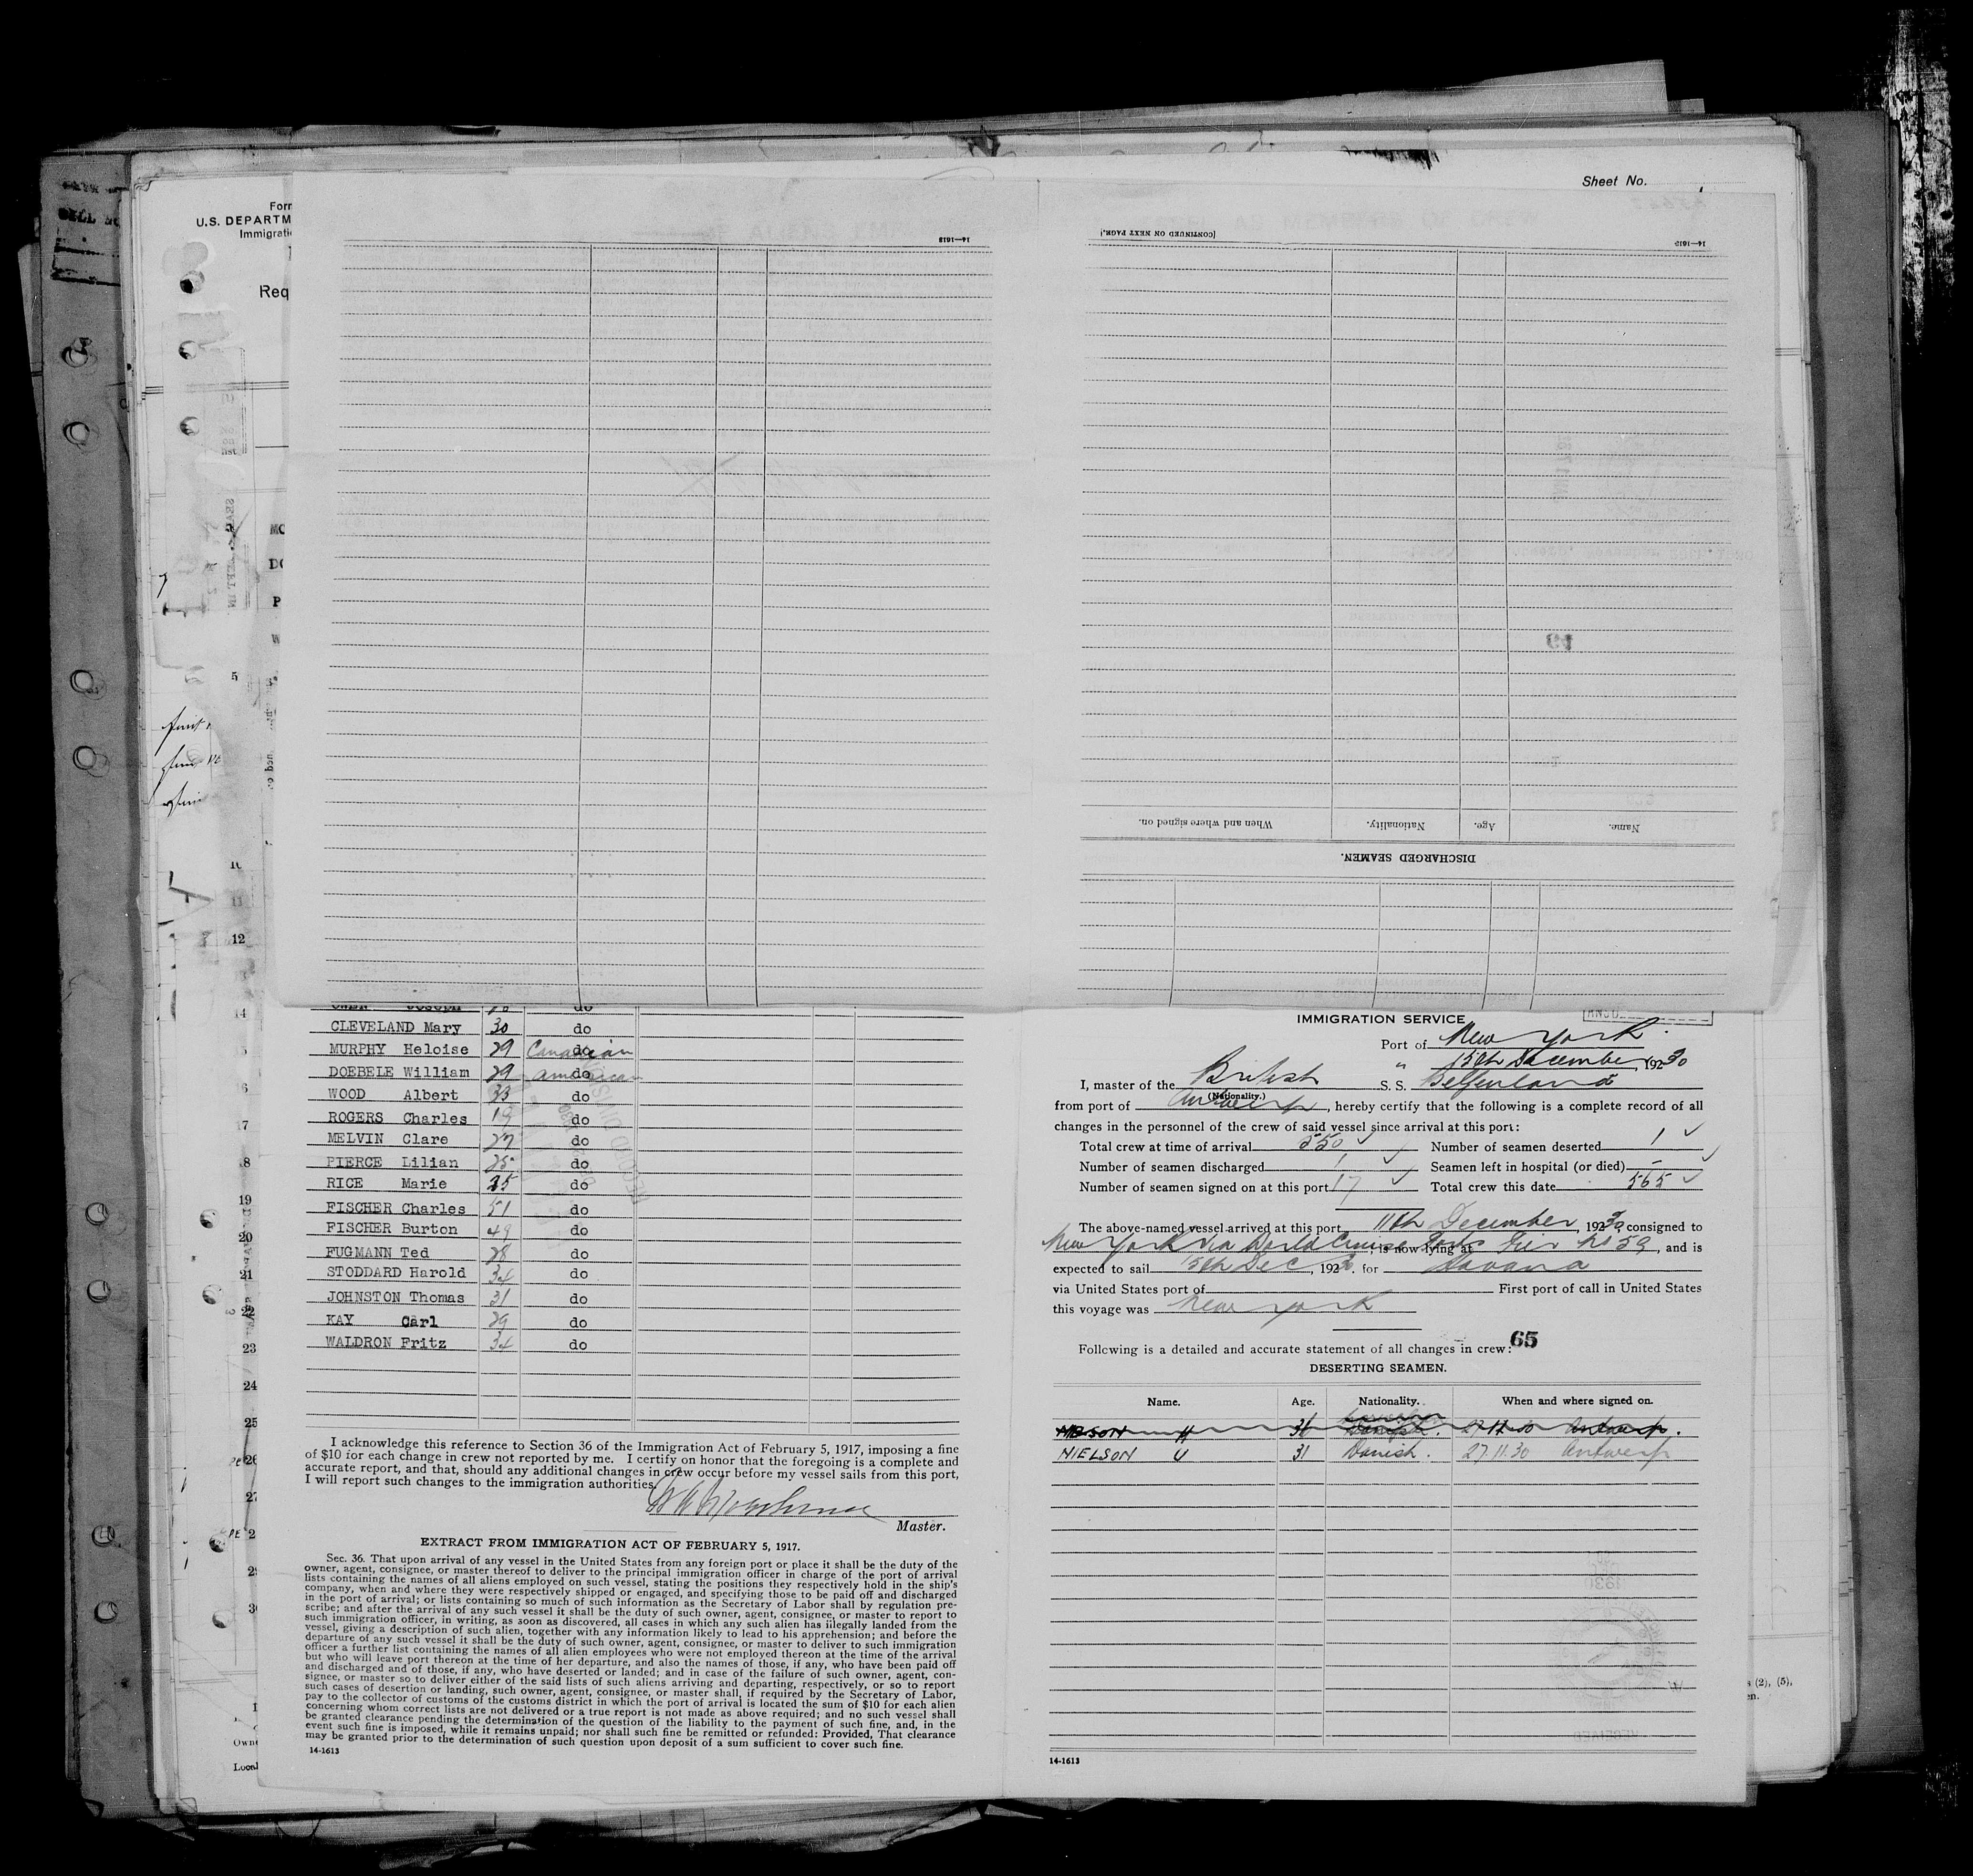 Sheet No.
Form
U.S. DEPARTM
Immigratio
Req
14—1613
[CONTINUED ON NEXT PAGE.]
14—1613
When and where signed on.
Nationality.
Age.
Name.
DISCHARGED SEAMEN.
OWEN Joseph do
CLEVELAND Mary 30 do
MURPHY Heloise 29 do Canadian
DOEBELE William 29 do american
WOOD Albert 33 do
ROGERS Charles 19 do
MELVIN Clare 27 do
PIERCE Lilian 25 do
RICE Marie 25 do
FISCHER Charles 51 do
FISCHER Burton 49 do
FUGMANN Ted 28 do
STODDARD Harold 34 do
JOHNSTON Thomas 31 do
KAY Carl 29 do
WALDRON Fritz 34 do
I acknowledge this reference to Section 36 of the Immigration Act of February 5, 1917, imposing a fine
of $10 for each change in crew not reported by me. I certify on honor that the foregoing is a complete and
accurate report, and that, should any additional changes in crew occur before my vessel sails from this port,
I will report such changes to the immigration authorities.
Master.
EXTRACT FROM IMMIGRATION ACT OF FEBRUARY 5, 1917.
Sec. 36. That upon arrival of any vessel in the United States from any foreign port or place it shall be the duty of the
owner, agent, consignee, or master thereof to deliver to the principal immigration officer in charge of the port of arrival
lists containing the names of all aliens employed on such vessel, stating the positions they respectively hold in the ship's
company, when and where they were respectively shipped or engaged, and specifying those to be paid off and discharged
in the port of arrival; or lists containing so much of such information as the Secretary of Labor shall by regulation pre-
scribe; and after the arrival of any such vessel it shall be the duty of such owner, agent, consignee, or master to report to
such immigration officer, in writing, as soon as discovered, all cases in which any such alien has illegally landed from the
vessel, giving a description of such alien, together with any information likely to lead to his apprehension; and before the
departure of any such vessel it shall be the duty of such owner, agent, consignee, or master to deliver to such immigration
officer a further list containing the names of all alien employees who were not employed thereon at the time of the arrival
but who will leave port thereon at the time of her departure, and also the names of those, if any, who have been paid off
and discharged and of those, if any, who have deserted or landed; and in case of the failure of such owner, agent, con-
signee, or master so to deliver either of the said lists of such aliens arriving and departing, respectively, or so to report
such cases of desertion or landing, such owner, agent, consignee, or master shall, if required by the Secretary of Labor,
pay to the collector of customs of the customs district in which the port of arrival is located the sum of $10 for each alien
concerning whom correct lists are not delivered or a true report is not made as above required; and no such vessel shall
be granted clearance pending the determination of the question of the liability to the payment of such fine, and, in the
event such fine is imposed, while it remains unpaid; nor shall such fine be remitted or refunded: Provided, That clearance
may be granted prior to the determination of such question upon deposit of a sum sufficient to cover such fine.
14-1613
IMMIGRATION SERVICE
Port of New York
15th December, 1930
I, master of the British S. S. Belgenland
(Nationality.)
from port of Antwerp, hereby certify that the following is a complete record of all
changes in the personnel of the crew of said vessel since arrival at this port:
Total crew at time of arrival 550 Number of seamen deserted 1
Number of seamen discharged 1 Seamen left in hospital (or died) -
Number of seamen signed on at this port 17 Total crew this date 565
The above-named vessel arrived at this port 11th December, 1930, consigned to
New York via World Cruise Ports, is now lying at Pier No 59, and is
expected to sail 15th Dec, 1930. for Havana
via United States port of First port of call in United States
this voyage was New York
65
Following is a detailed and accurate statement of all changes in crew:
DESERTING SEAMEN.
Name. Age. Nationality. When and where signed on.
NIELSON U 31 Danish. 27.11.30 Antwerp
14-1613